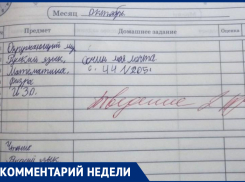 Месяц Октябрь
Предмет Домашнее задание
Окружающий м
Русский язык
Математика с. 44 №205
физра
ИЗО.
Поведение
Чтение
Русский язык
КОММЕНТАРИЙ НЕДЕЛИ